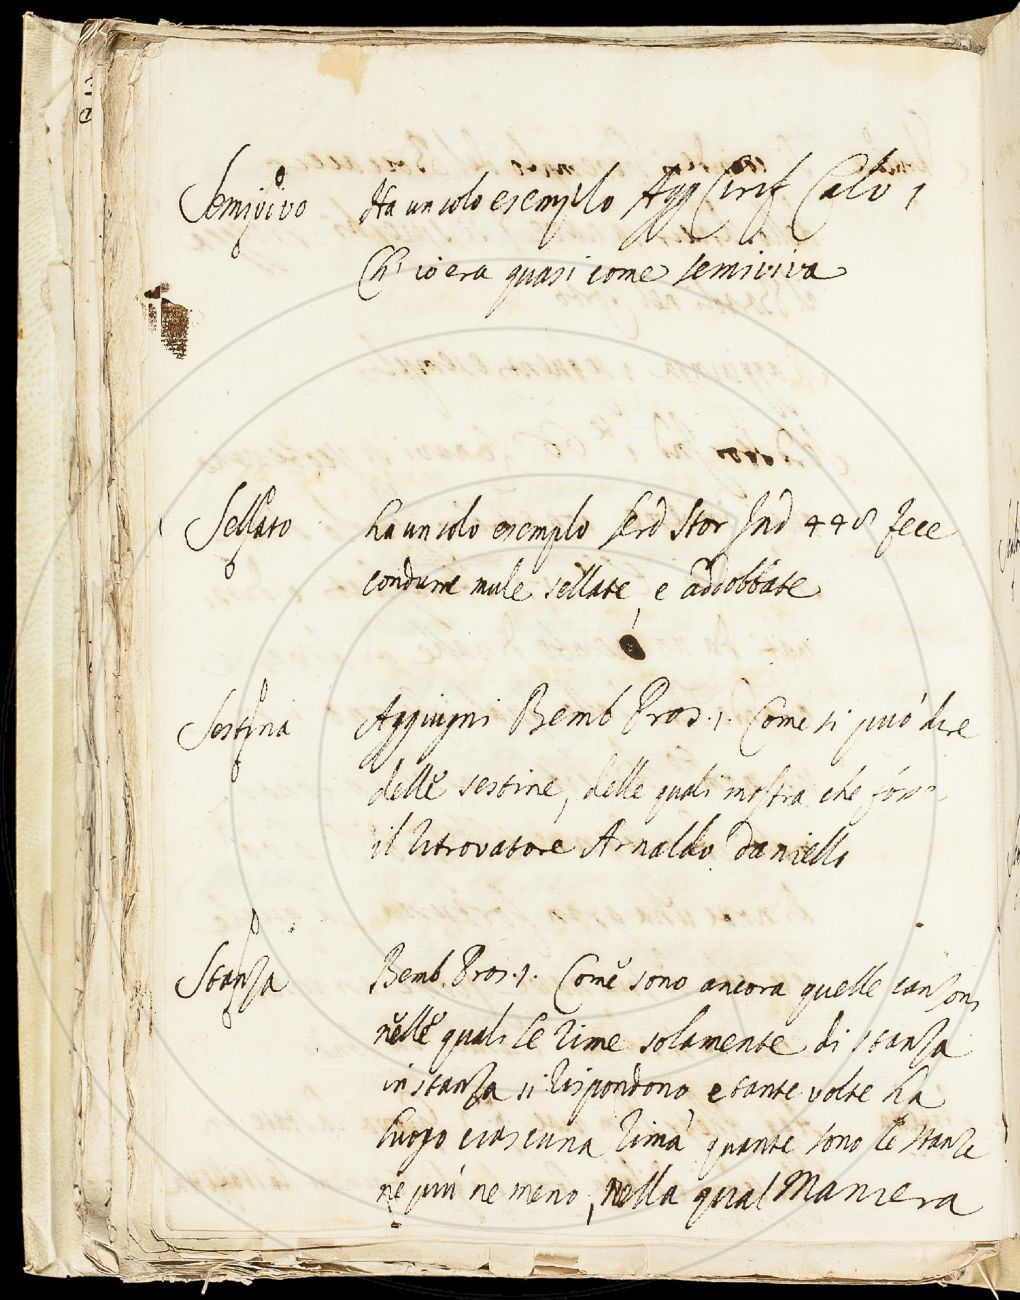 Semivivo Ha un solo esempio Agg Cirif Calv 1
Ch' io era quasi come semiviva
Sellato ha un solo esempio Serd Stor Ind 448 fece
condurre mule sellate, e addobbate
Sestina Aggiugni Bemb Pros. 1. Come si può dire
delle sestine, delle quali mostra che
il ritrovatore Arnaldo Daniello
Stanza Bemb. Pros. 1. Come sono ancora quelle canzoni
nelle quali le rime solamente di stanza
in stanza si rispondono e tante volte ha
luogo ciascuna rima quante sono le stanze
ne più ne meno, nella qual Maniera